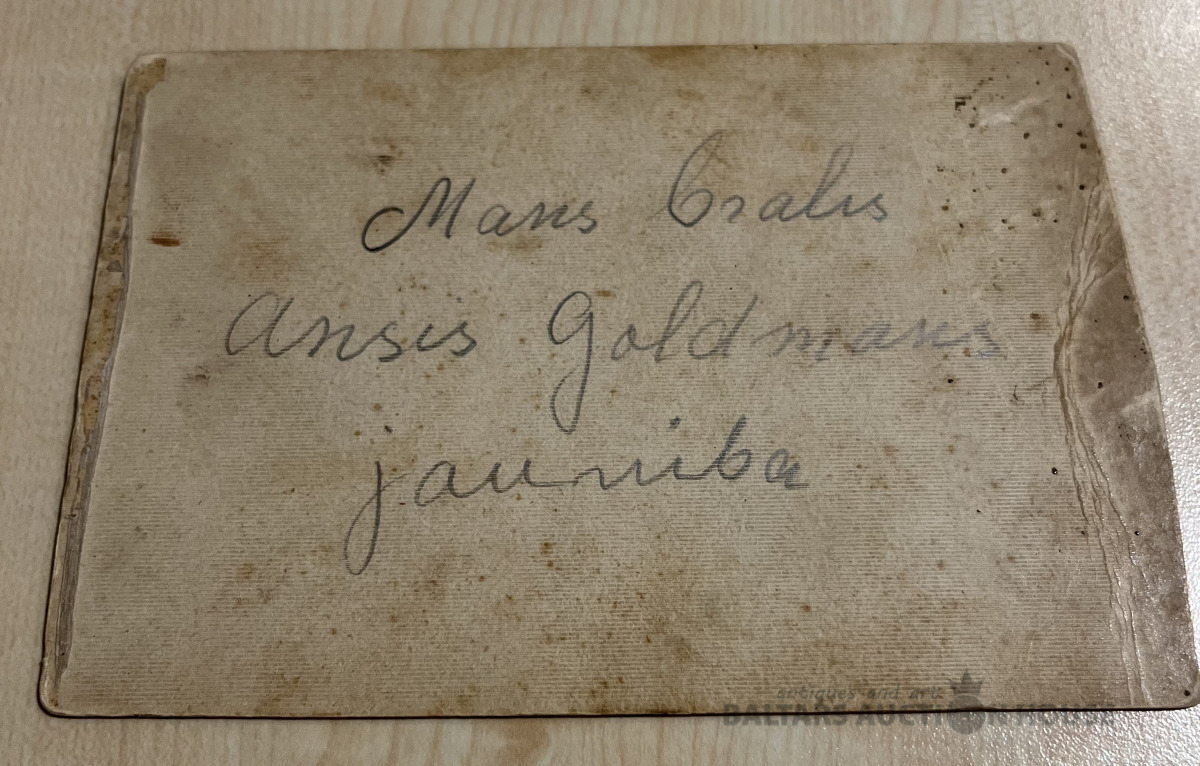 Mans Bralis
Ansis Goldmans
jauniba
antiques and art
BALTARS AUCTION HOUSE